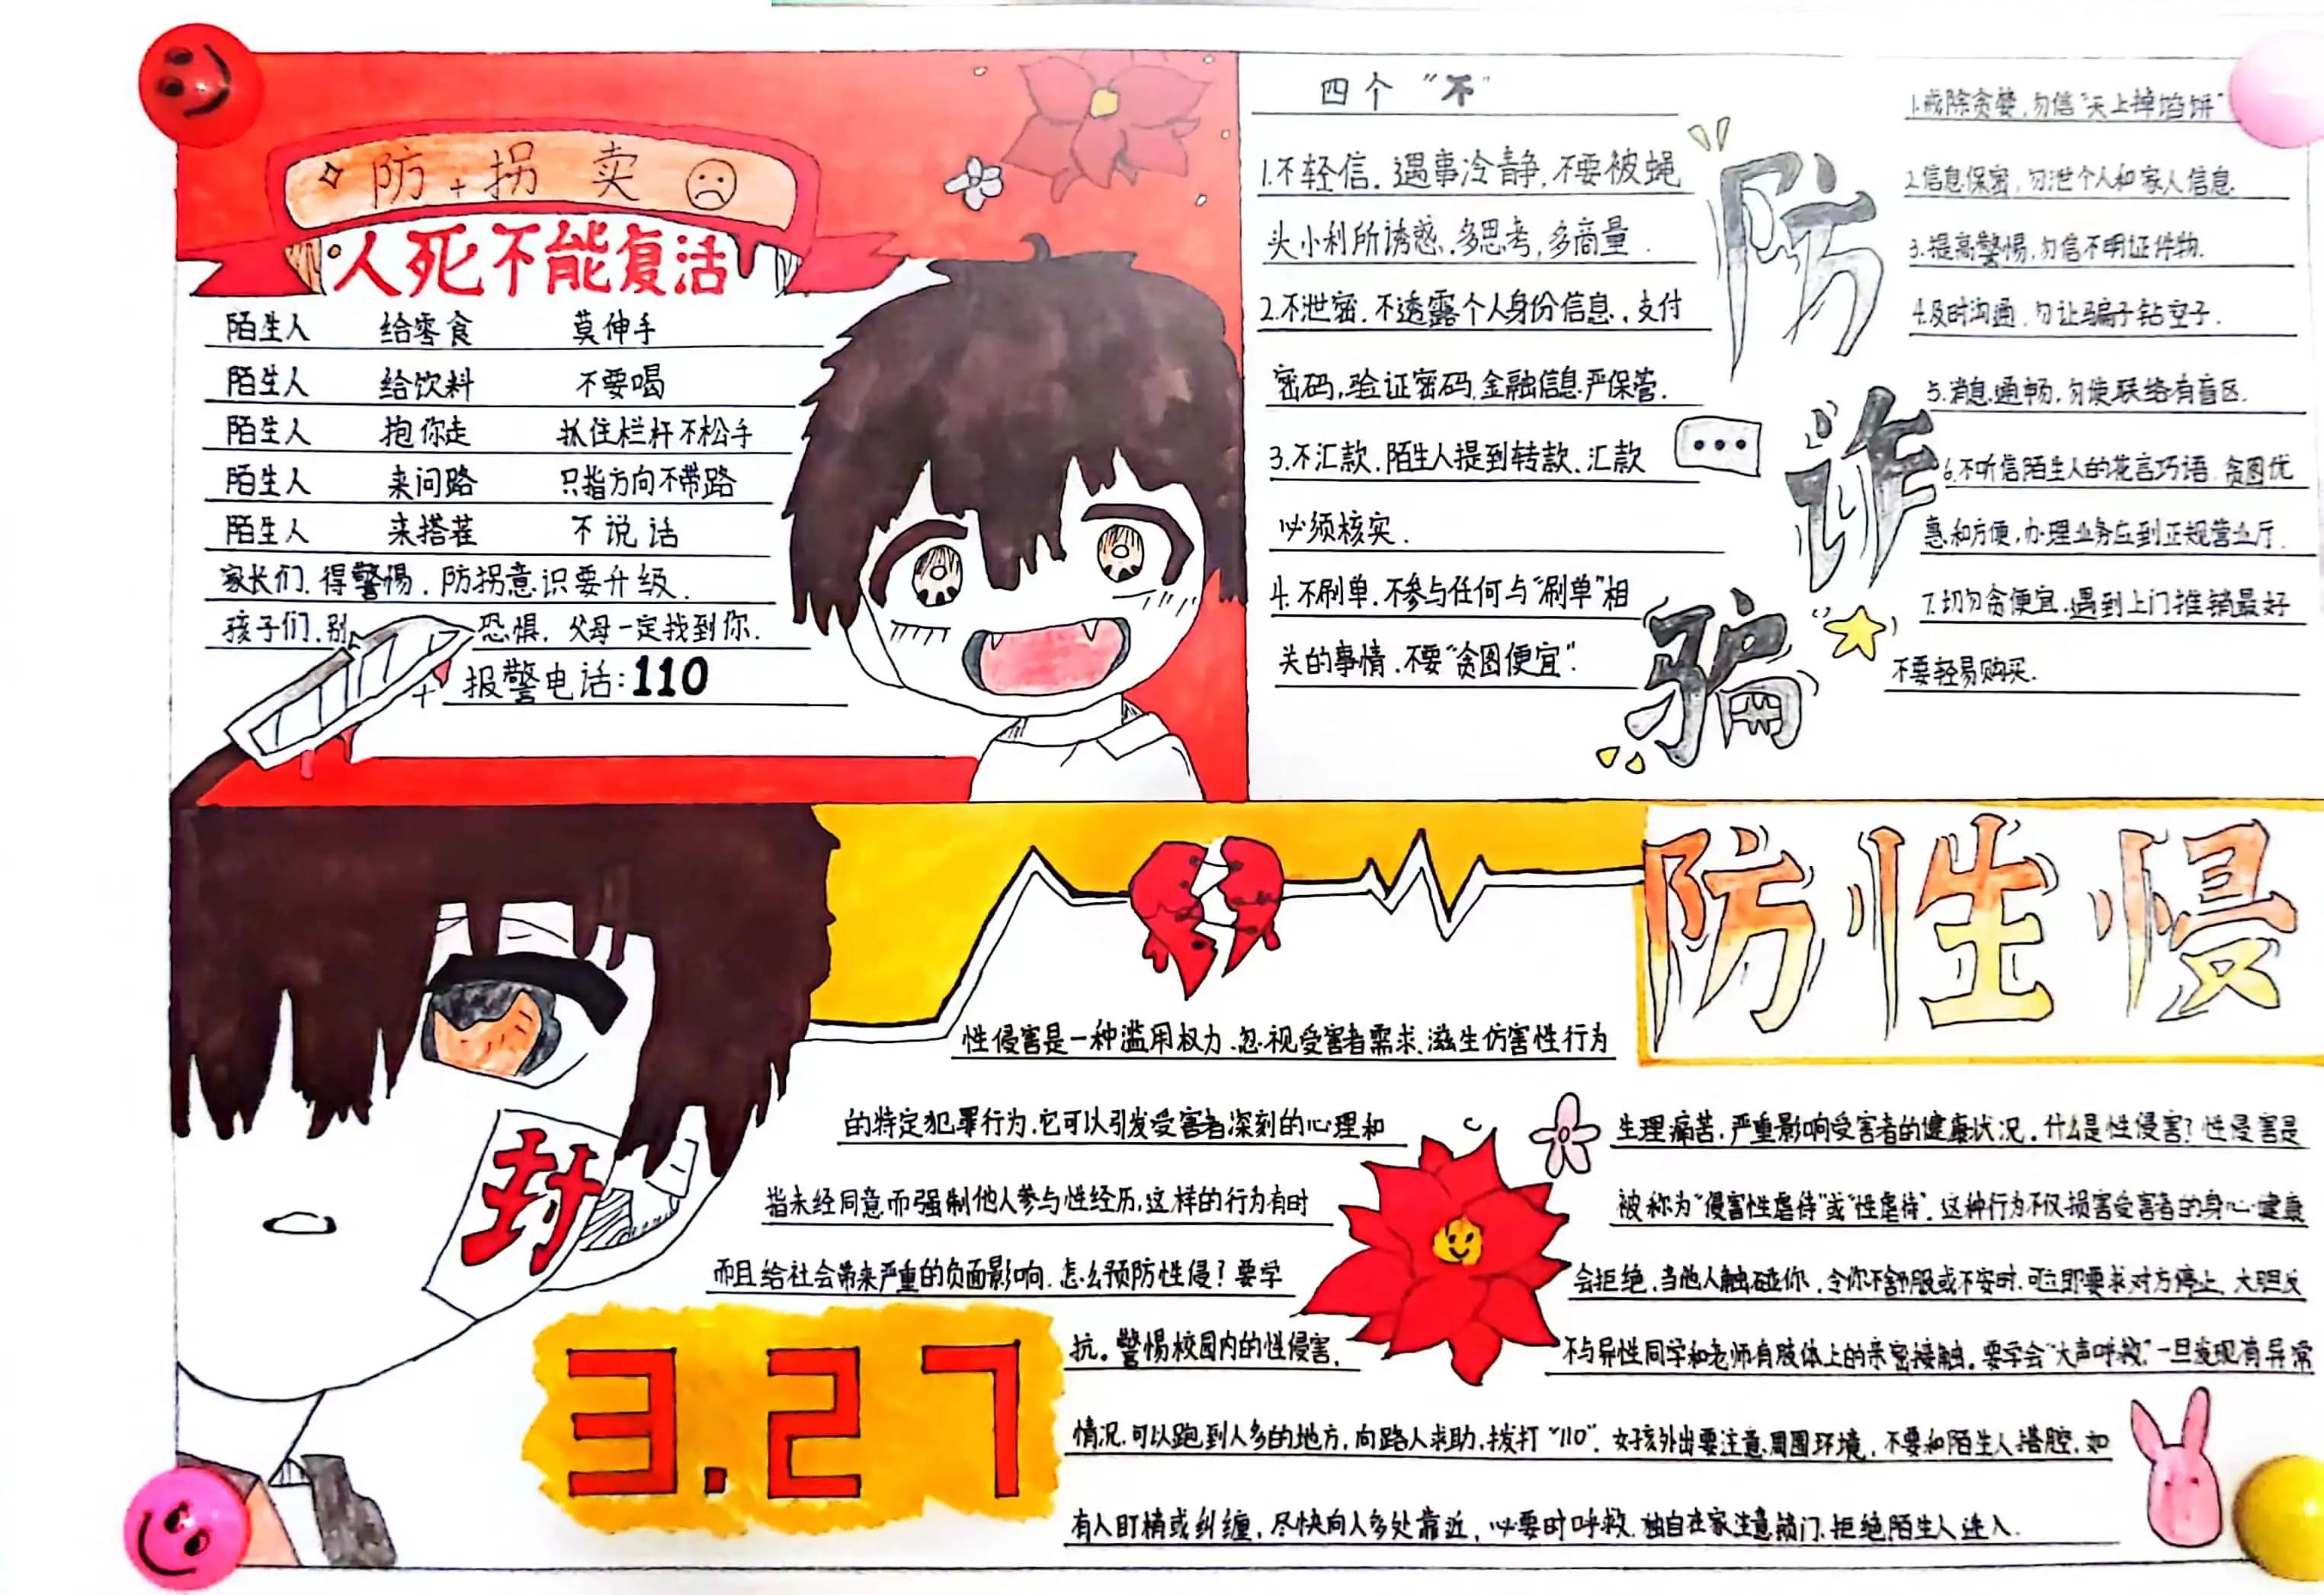 防拐卖
人死不能复活
陌生人 给零食 莫伸手
陌生人 给饮料 不要喝
陌生人 抱你走 抓住栏杆不松手
陌生人 来问路 只指方向不带路
陌生人 来搭茬 不说话
家长们.得警惕.防拐意识要升级.
孩子们.别恐惧.父母一定找到你.
报警电话:110
四个“不”
1.不轻信.遇事冷静,不要被蝇
头小利所诱惑.多思考,多商量.
2.不泄密.不透露个人身份信息.支付
密码,验证密码,金融信息严保管.
3.不汇款.陌生人提到转款.汇款
必须核实.
4.不刷单.不参与任何与“刷单”相
关的事情.不要“贪图便宜”.
防诈骗
1.戒除贪婪,勿信“天上掉馅饼”
2.信息保密,勿泄个人和家人信息.
3.提高警惕,勿信不明证件物.
4.及时沟通.勿让骗子钻空子.
5.消息通畅.勿使联络有盲区.
6.不听信陌生人的花言巧语.贪图优
惠和方便,办理业务应到正规营业厅.
7.切勿贪便宜.遇到上门推销最好
不要轻易购买.
封
防性侵
性侵害是一种滥用权力.忽视受害者需求.滋生伤害性行为
的特定犯罪行为.它可以引发受害者深刻的心理和
生理痛苦.严重影响受害者的健康状况.什么是性侵害?性侵害是
指未经同意而强制他人参与性经历,这样的行为有时
被称为“侵害性虐待”或“性虐待”.这种行为不仅损害受害者的身心健康
而且给社会带来严重的负面影响.怎么预防性侵?要学
会拒绝.当他人触碰你.令你不舒服或不安时.可立即要求对方停止.大胆反
抗。警惕校园内的性侵害.
不与异性同学和老师有肢体上的亲密接触.要学会“大声呼救”.一旦发现有异常
情况.可以跑到人多的地方,向路人求助,拨打“110”.女孩外出要注意周围环境.不要和陌生人搭腔.如
有人盯梢或纠缠,尽快向人多处靠近,必要时呼救.独自在家注意锁门.拒绝陌生人进入.
3.27